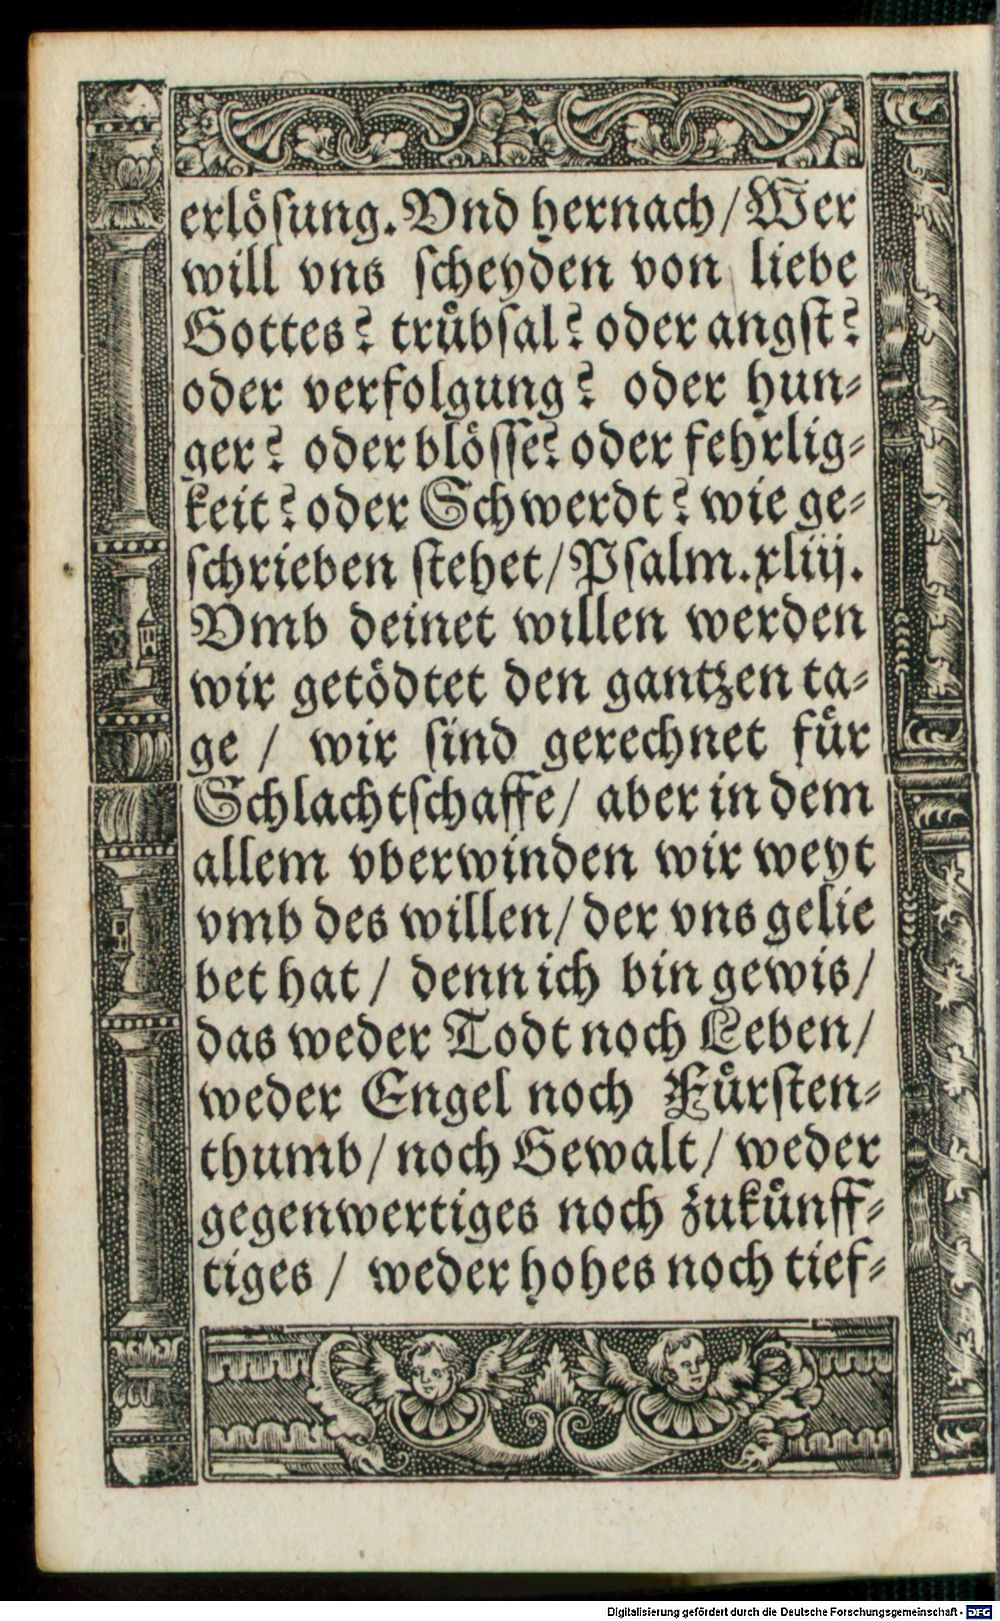 erlösung. Vnd hernach / Wer
will vns scheyden von liebe
Gottes? trübsal? oder angst?
oder verfolgung? oder hun-
ger? oder blösse? oder fehrlig-
keit? oder Schwerdt? wie ge-
schrieben stehet / Psalm. xliij.
Vmb deinet willen werden
wir getödtet den gantzen ta-
ge / wir sind gerechnet für
Schlachtschaffe / aber in dem
allem vberwinden wir weyt
vmb des willen / der vns gelie
bet hat / denn ich bin gewis /
das weder Todt noch Leben /
weder Engel noch Fürsten-
thumb / noch Gewalt / weder
gegenwertiges noch zukünff-
tiges / weder hohes noch tief-
Digitalisierung gefördert durch die Deutsche Forschungsgemeinschaft - DFG